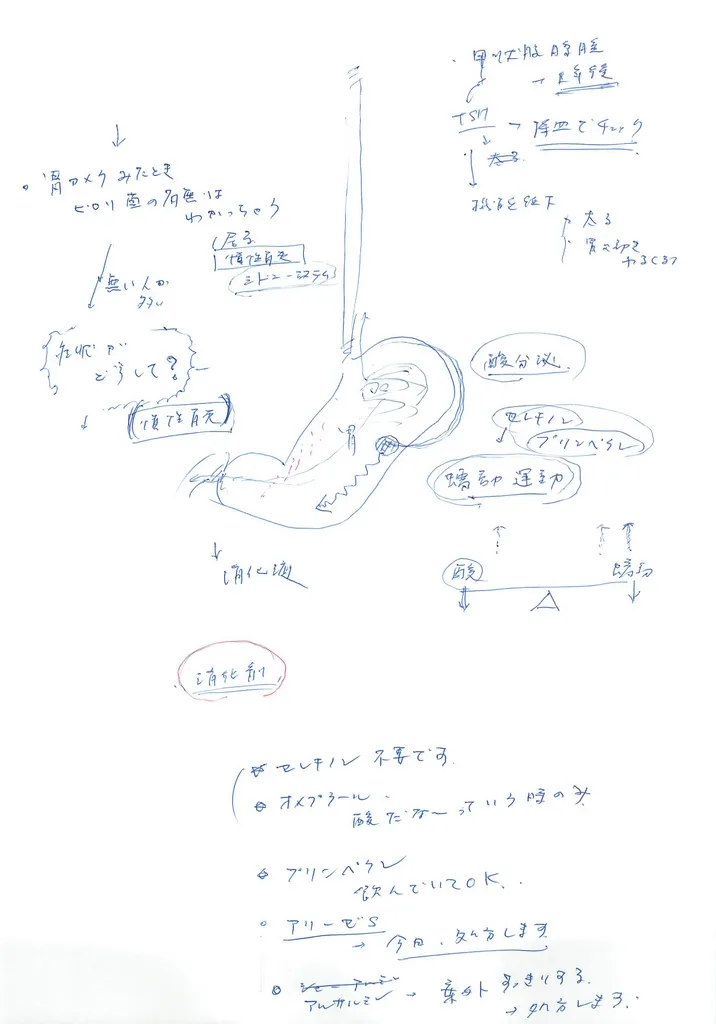 ・甲状腺腫瘍
→ 良性
TSH → 採血でチェック
↓ 太る
機能低下
太る
胃の動き
わるくなる
↓
・胃カメラみたとき
ピロリ菌の有無は
わかっちゃう
居る
慢性胃炎
無い人が
多い
症状が
どうして?
↓ 慢性胃炎
胃
酸分泌
セレキノン
プリンペラン
蠕動運動
酸
蠕動
↓
消化液
消化剤
セレキノン 不要です。
オメプラール
酸だなーっていう時のみ
プリンペラン
飲んでいてOK.
アリーゼS
→ 今日、処方します
アルサルミン → 案外すっきりする。
→ 処方します。